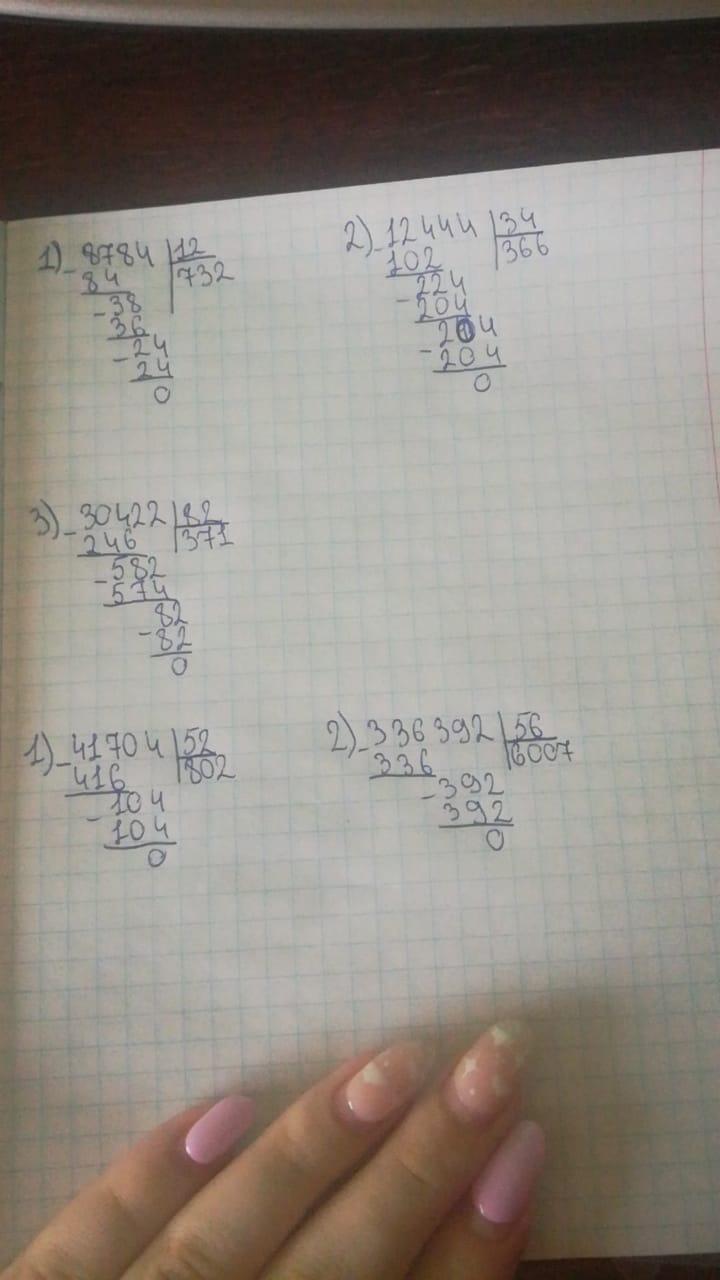 1) - 8784 | 12
84 | 732
- 38
36
- 24
24
0
2) - 12444 | 34
102 | 366
224
- 204
204
- 204
0
3) - 30422 | 82
246 | 371
- 582
574
82
- 82
0
1) - 41704 | 52
416 | 802
- 104
104
0
2) - 336392 | 56
336 | 6007
- 392
392
0